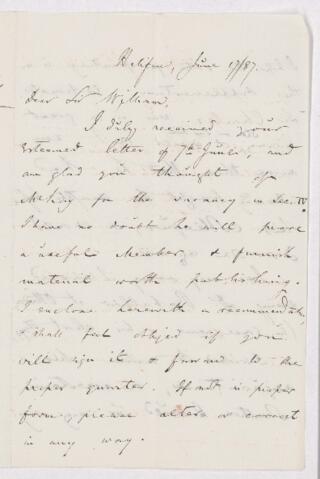 Halifax, June 17/87.
Dear Sir William,
I duly received your
esteemed letter of 7th June, and
am glad you thought of
McKay for the vacancy in Sec. IV
I have no doubt he will prove
a useful Member, & furnish
material worth publishing.
I enclose herewith a recommendatn,
& shall feel obliged if you
will sign it & forward to the
proper quarter. If not in proper
form please alter or correct
in any way.